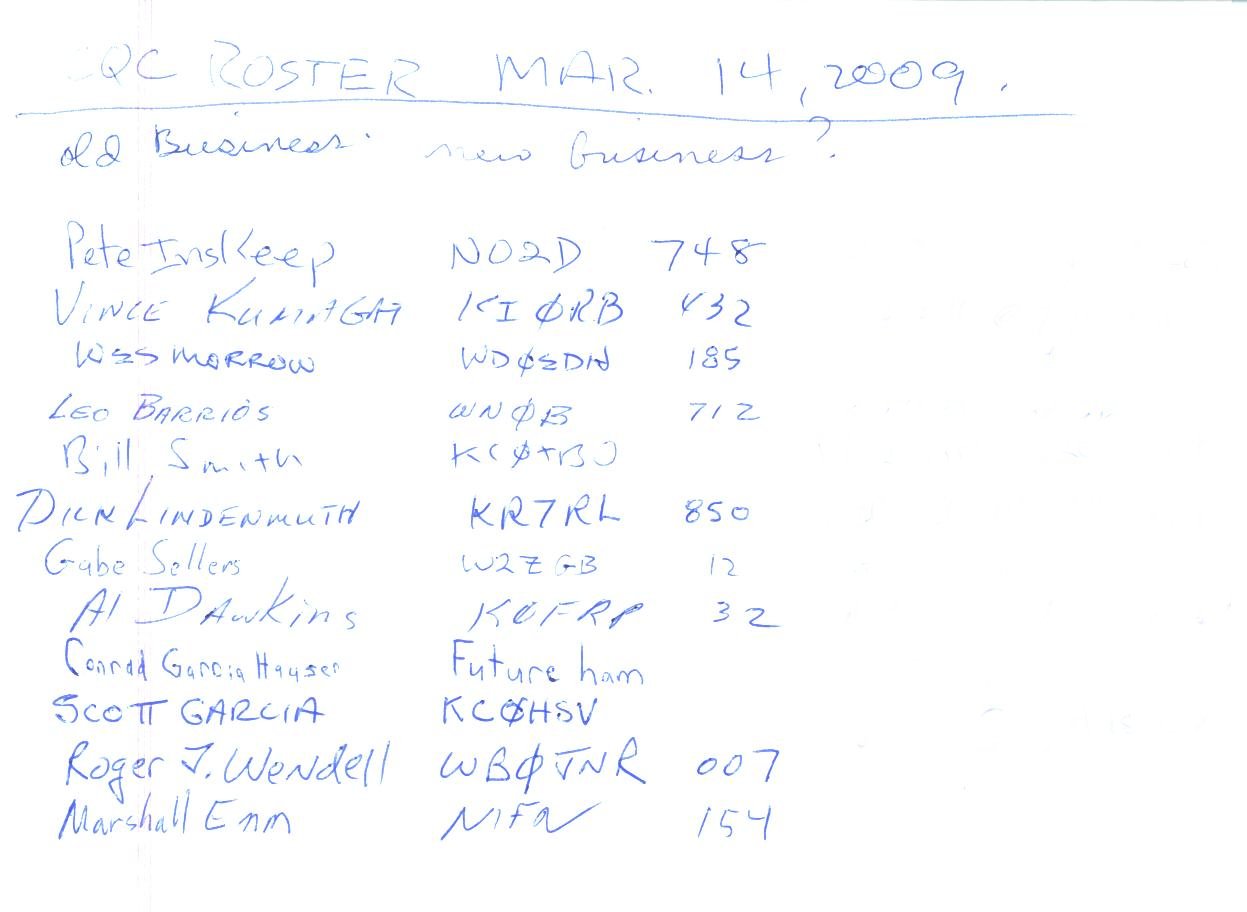 CQC ROSTER MAR. 14, 2009.
old Business. new business?
Pete Inskeep NO2D 748
VINCE KUMAGAI KIØRB 432
WES MORROW WDØEDN 185
LEO BARRIOS WNØB 712
Bill Smith KCØTBJ
DICK LINDENMUTH KR7RL 850
Gabe Sellers W2ZGB 12
Al DAWKins KØFRP 32
Conrad Garcia Hauser Future ham
SCOTT GARCIA KCØHSV
Roger J. Wendell WBØJNR 007
Marshall Emm N1FN 154